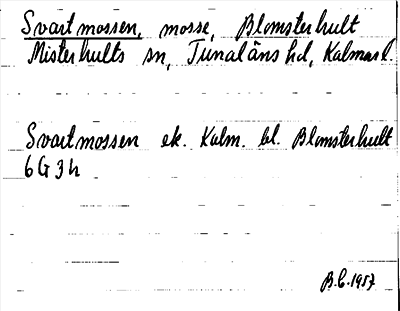 Svartmossen, mosse, Blomsterhult
Misterhults sn, Tunaläns hd, Kalmar l.
Svartmossen ek. Kalm. bl. Blomsterhult
6G3h
B.C. 1957